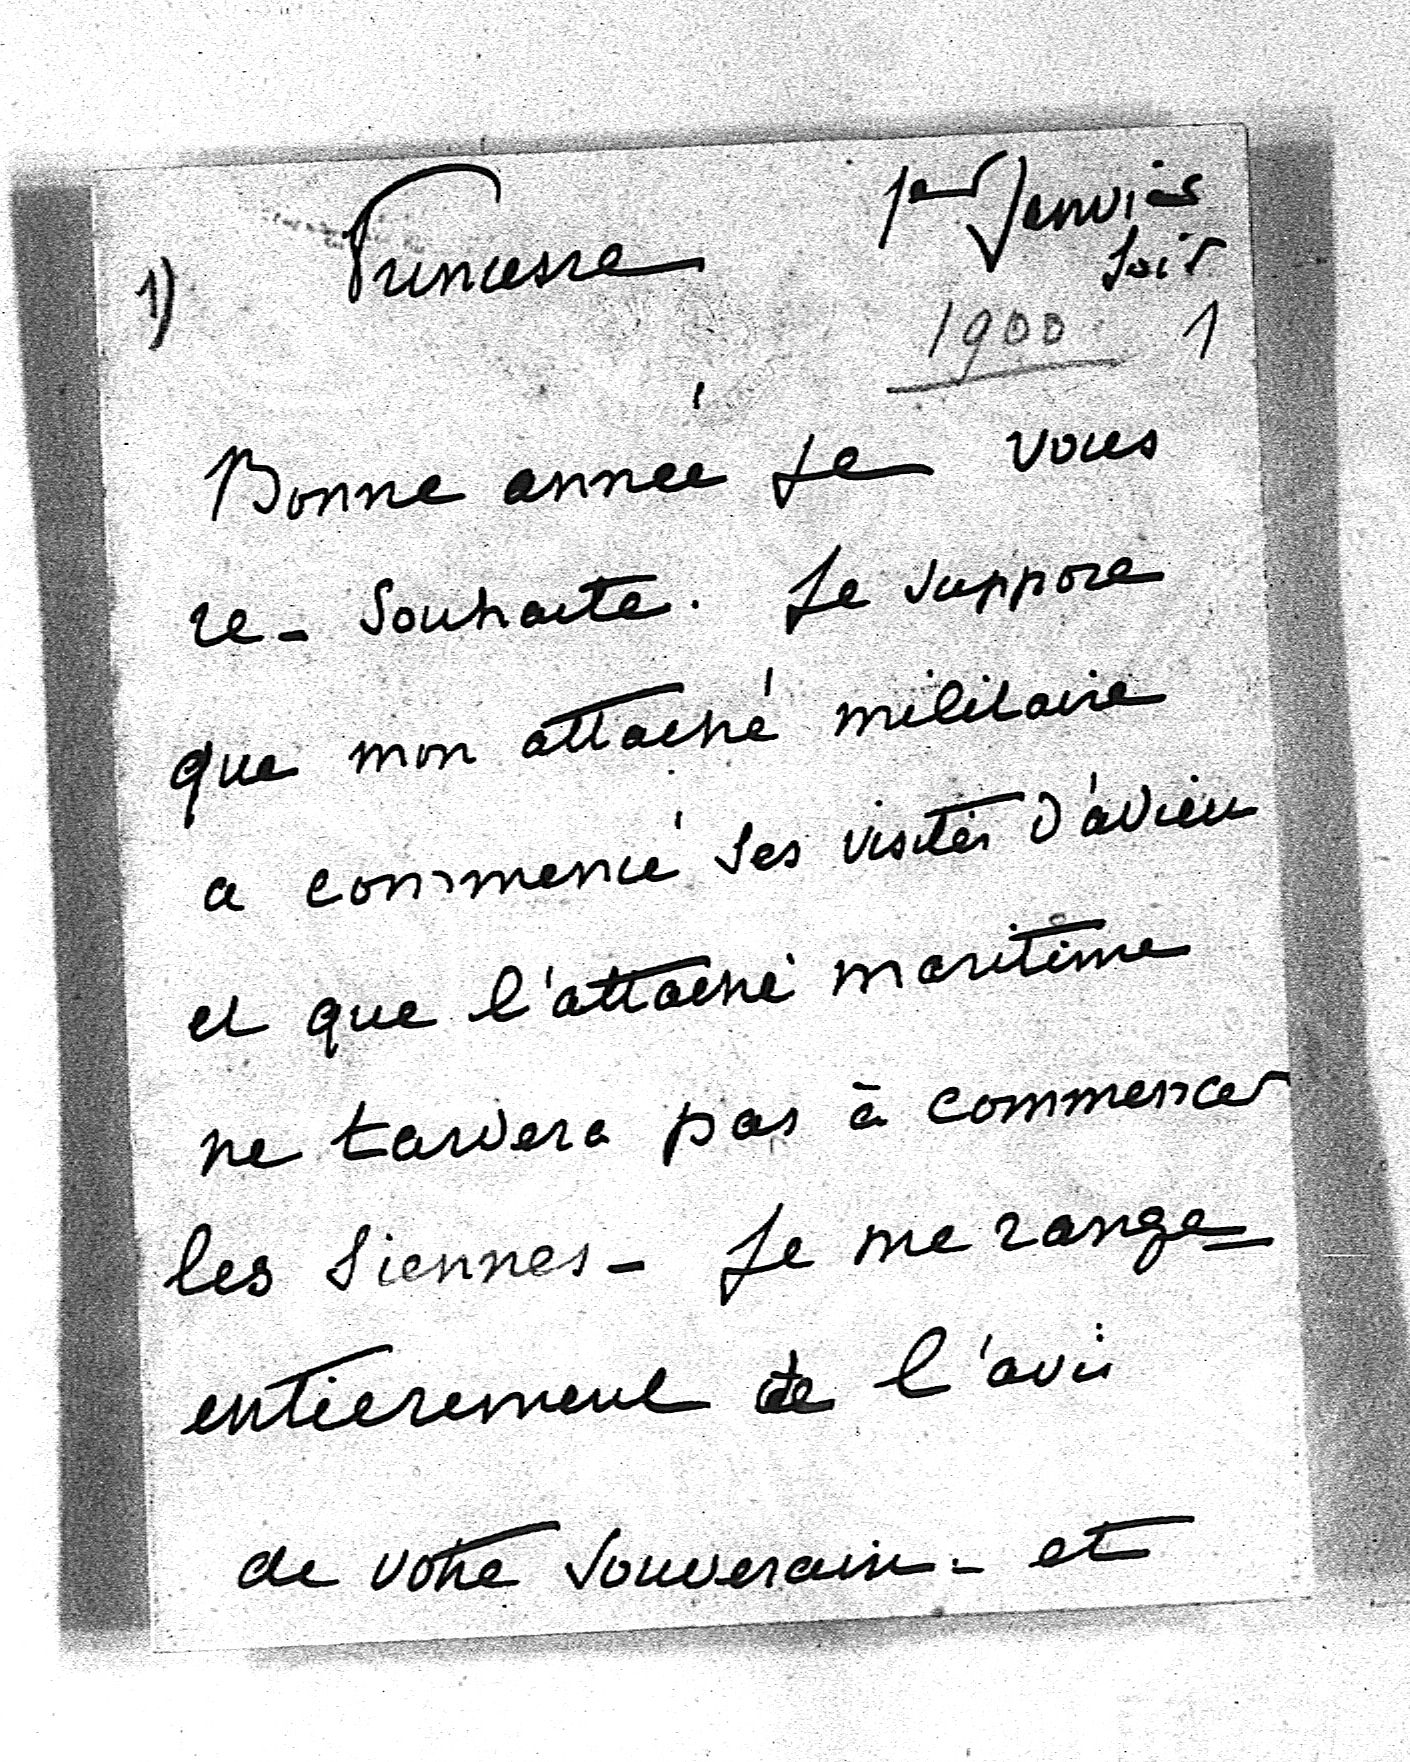 1er Janvier
Princesse
soir
1)
1900 1
Bonne année je vous
re-souhaite. Je suppose
que mon attaché militaire
a commencé ses visites d'adieu
et que l'attaché maritime
ne tardera pas à commencer
les siennes - Je me range
entierement de l'avis
de votre souverain - et